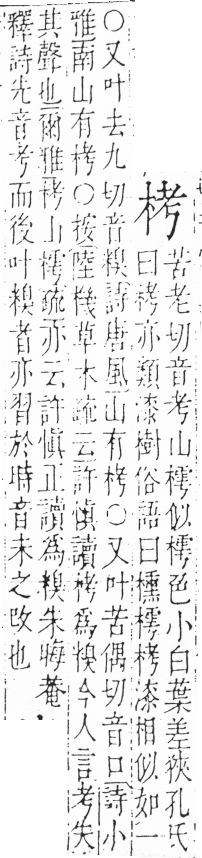 栲
苦老切音考山樗似樗色小白葉差狹孔氏
曰栲亦類漆樹俗語曰櫄樗栲漆相似如一
○又叶去九切音糗詩唐風山有栲○又叶苦偶切音口詩小
雅南山有栲○按陸機草木疏云許慎讀栲爲糗今人言考失
其聲也爾雅栲山樗疏亦云許慎正讀爲糗朱晦菴
釋詩先音考而後叶糗者亦習於時音未之改也